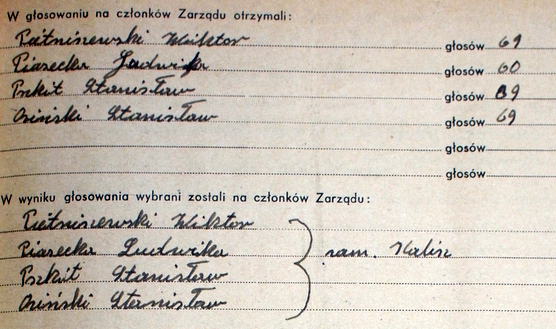 W głosowaniu na członków Zarządu otrzymali:
Piętniszewski Wiktor głosów 69
Piasecka Ludwika głosów 60
Pszkit Stanisław głosów 69
Osiński Stanisław głosów 69
głosów
głosów
W wyniku głosowania wybrani zostali na członków Zarządu:
Wiktor
Piasecka Ludwika zam. Kalisz
Stanisław
Osiński Stanisław